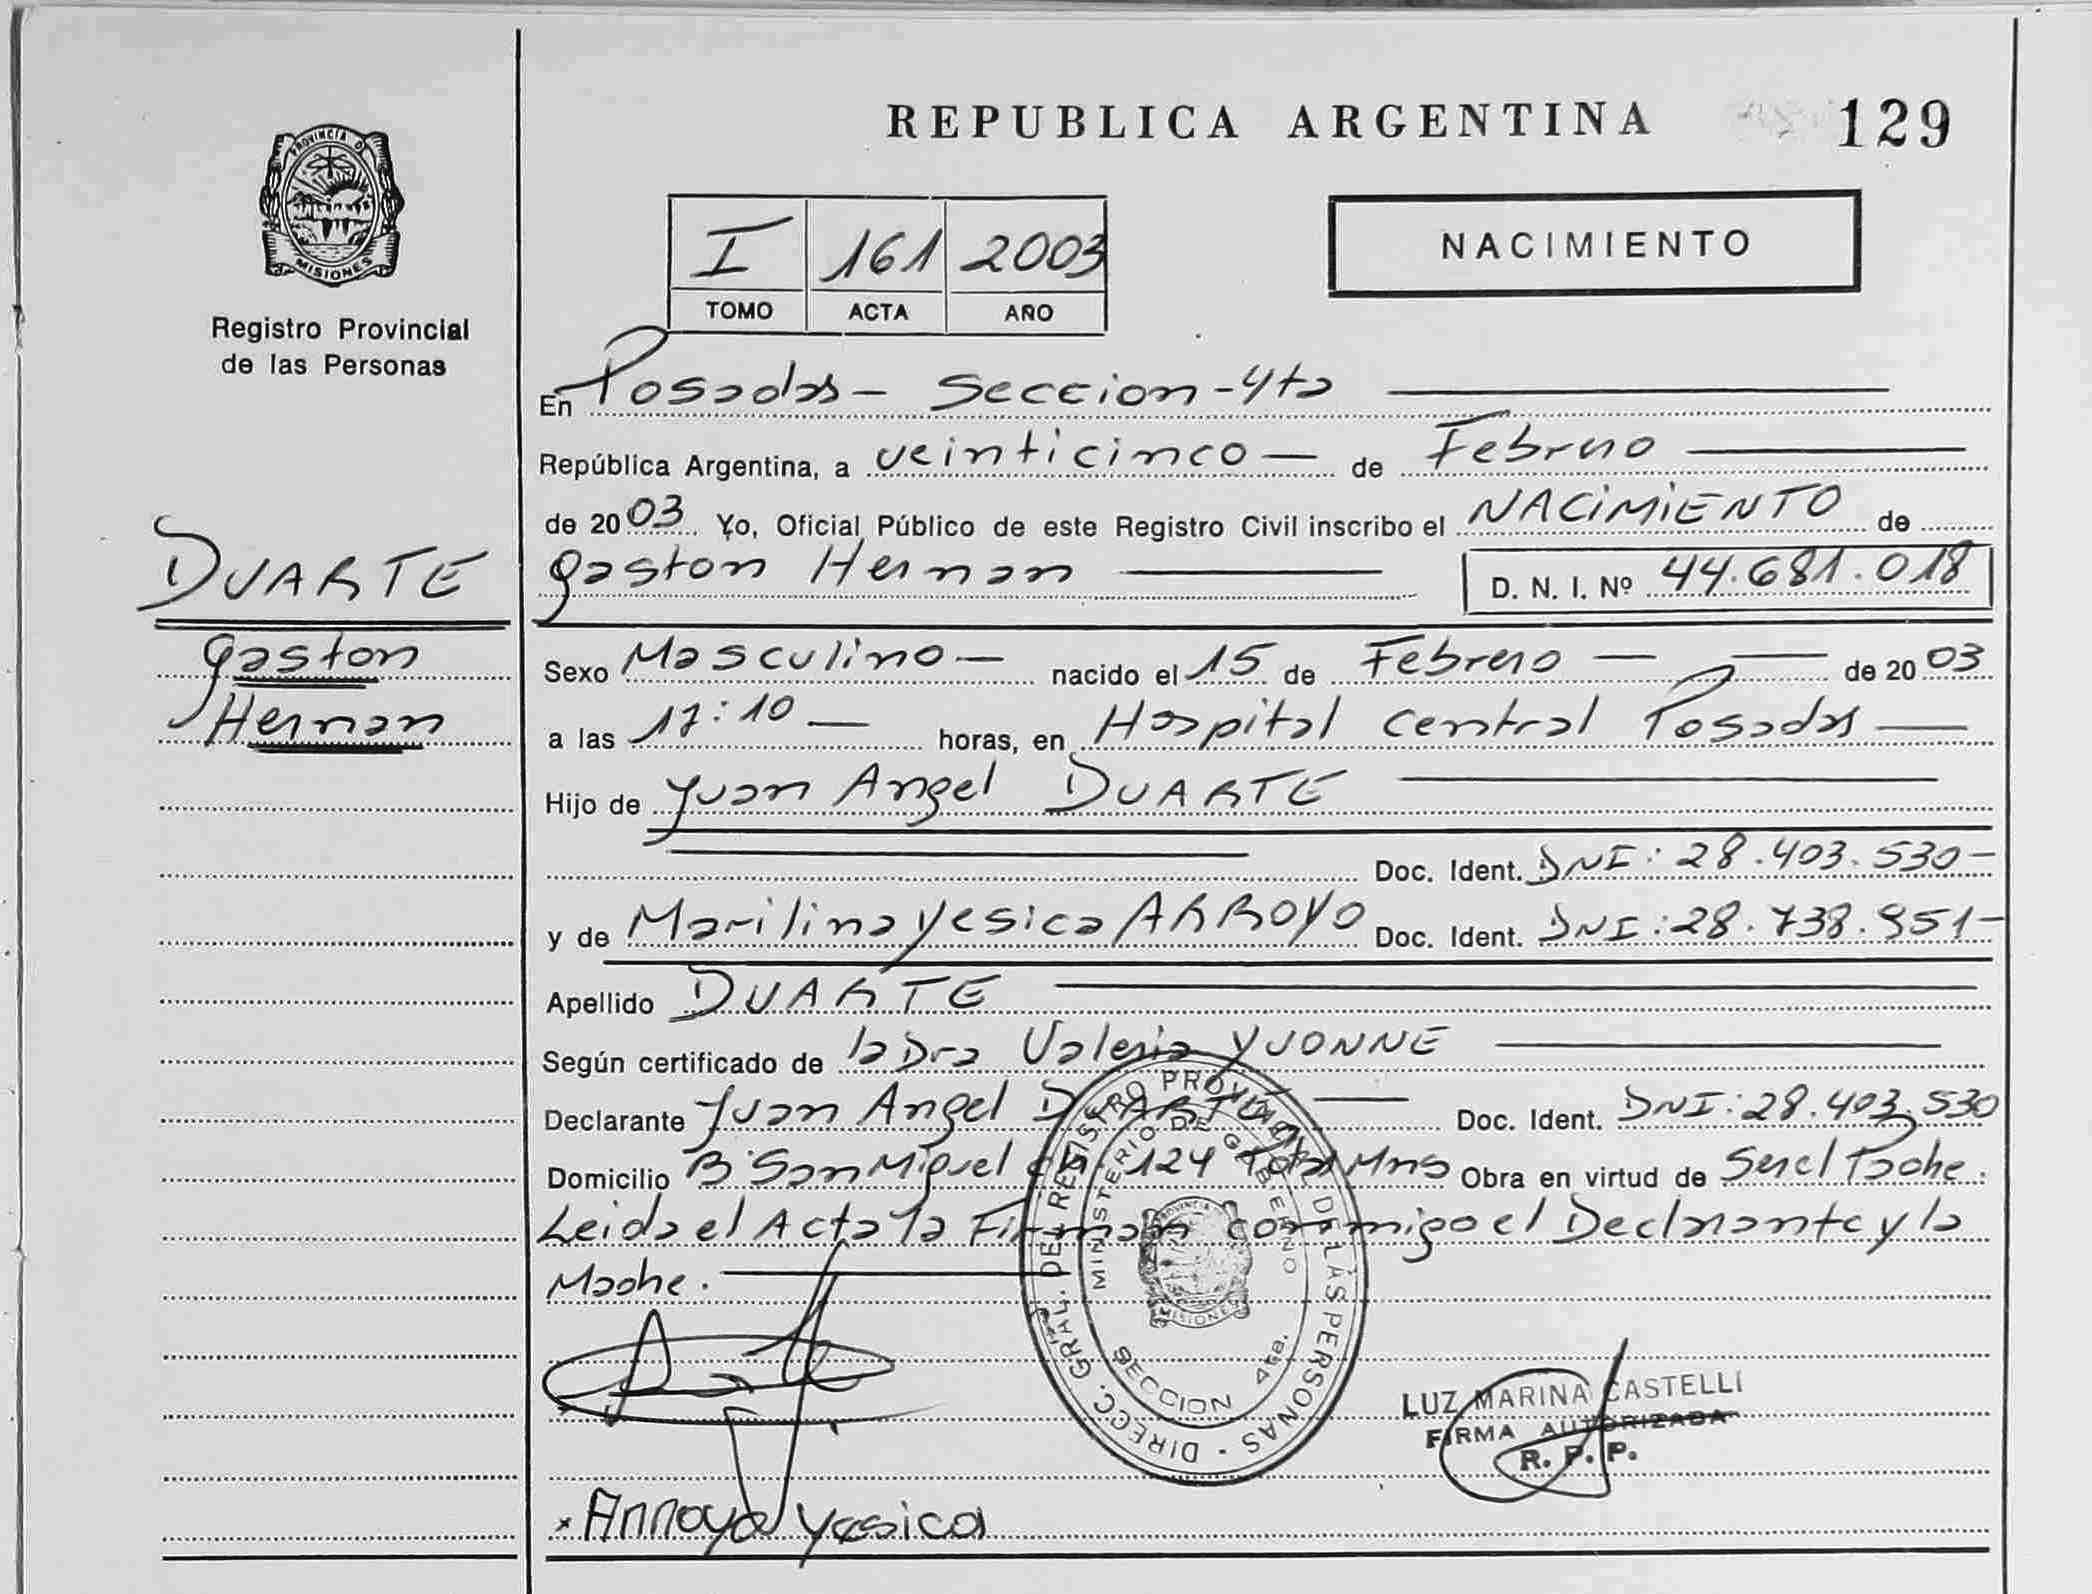 REPUBLICA ARGENTINA 129
PROVINCIA D
MISIONES
Registro Provincial
de las Personas
I 161 2003
TOMO ACTA AÑO
NACIMIENTO
En Posadas - Seccion - 4ta
República Argentina, a veinticinco — de Febrero
de 2003 Yo, Oficial Público de este Registro Civil inscribo el NACIMIENTO de
Gaston Hernan D. N. I. Nº 44.681.018
DUARTE
Gaston
Hernan
Sexo Masculino — nacido el 15 de Febrero — de 2003
a las 17:10 — horas, en Hospital Central Posadas
Hijo de Juan Angel DUARTE
Doc. Ident. DNI: 28.403.530-
y de Marilina Yesica ARROYO Doc. Ident. DNI: 28.738.951-
Apellido DUARTE
Según certificado de la Dra Valeria YVONNE
Declarante Juan Angel DUARTE Doc. Ident. DNI: 28.403.530
Domicilio B° San Miguel ch. 124 Pdas Mns Obra en virtud de Ser el Padre.
Leida el Acta la Firman conmigo el Declarante y la
Madre.
DIRECC. GRAL. DEL REGISTRO PROVINCIAL DE LAS PERSONAS
MINISTERIO DE GOBIERNO
SECCION 4ta.
MISIONES
LUZ MARINA CASTELLI
FIRMA AUTORIZADA
R. P. P.
x Arroyo Yesica